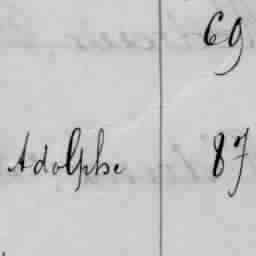 69
Adolphe 87